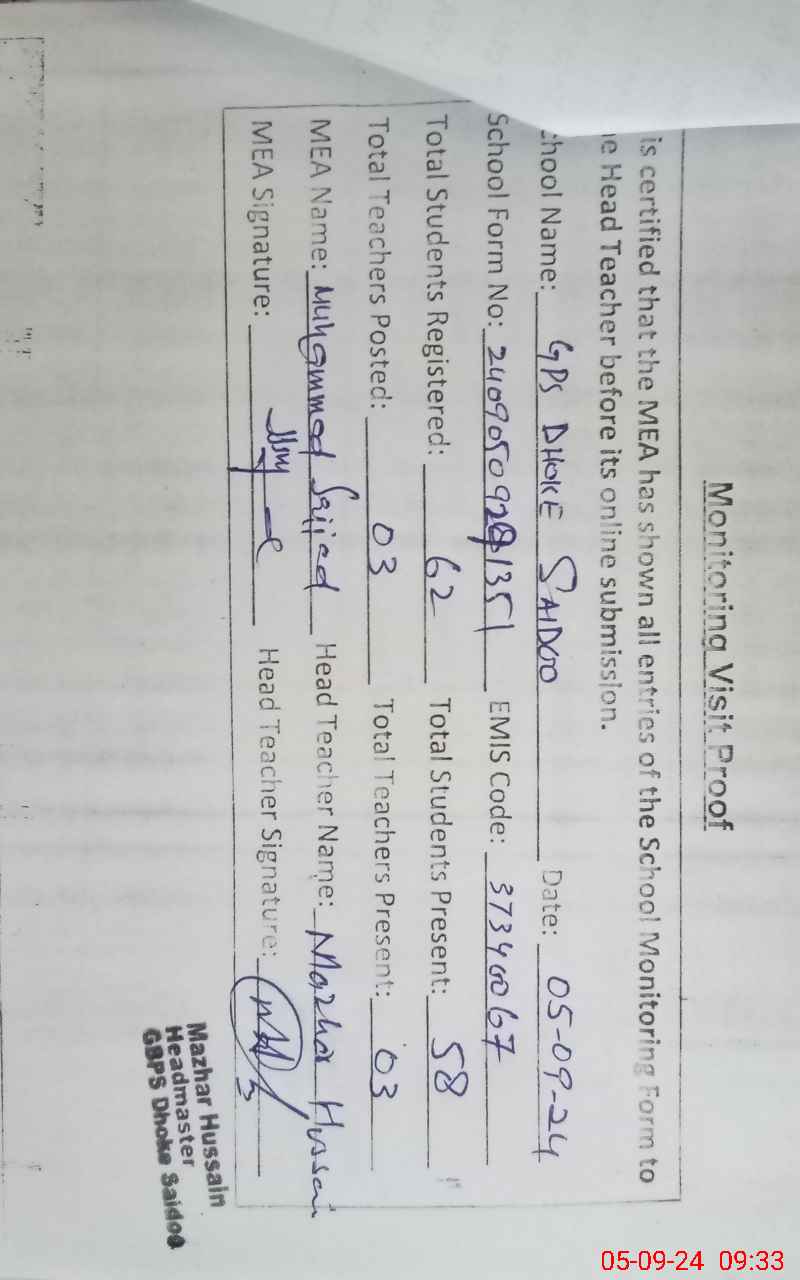 Monitoring Visit Proof
is certified that the MEA has shown all entries of the School Monitoring Form to
e Head Teacher before its online submission.
chool Name: GPS DHOKE SAIDOO Date: 05-09-24
School Form No: EMIS Code: 37340067
Total Students Registered: 62 Total Students Present: 58
Total Teachers Posted: 03 Total Teachers Present: 03
MEA Name: Muhammad Sajjad Head Teacher Name: Mazhar Hussai
MEA Signature: Head Teacher Signature:
Mazhar Hussain
Headmaster
GBPS Dhoke Saidoo
05-09-24 09:33